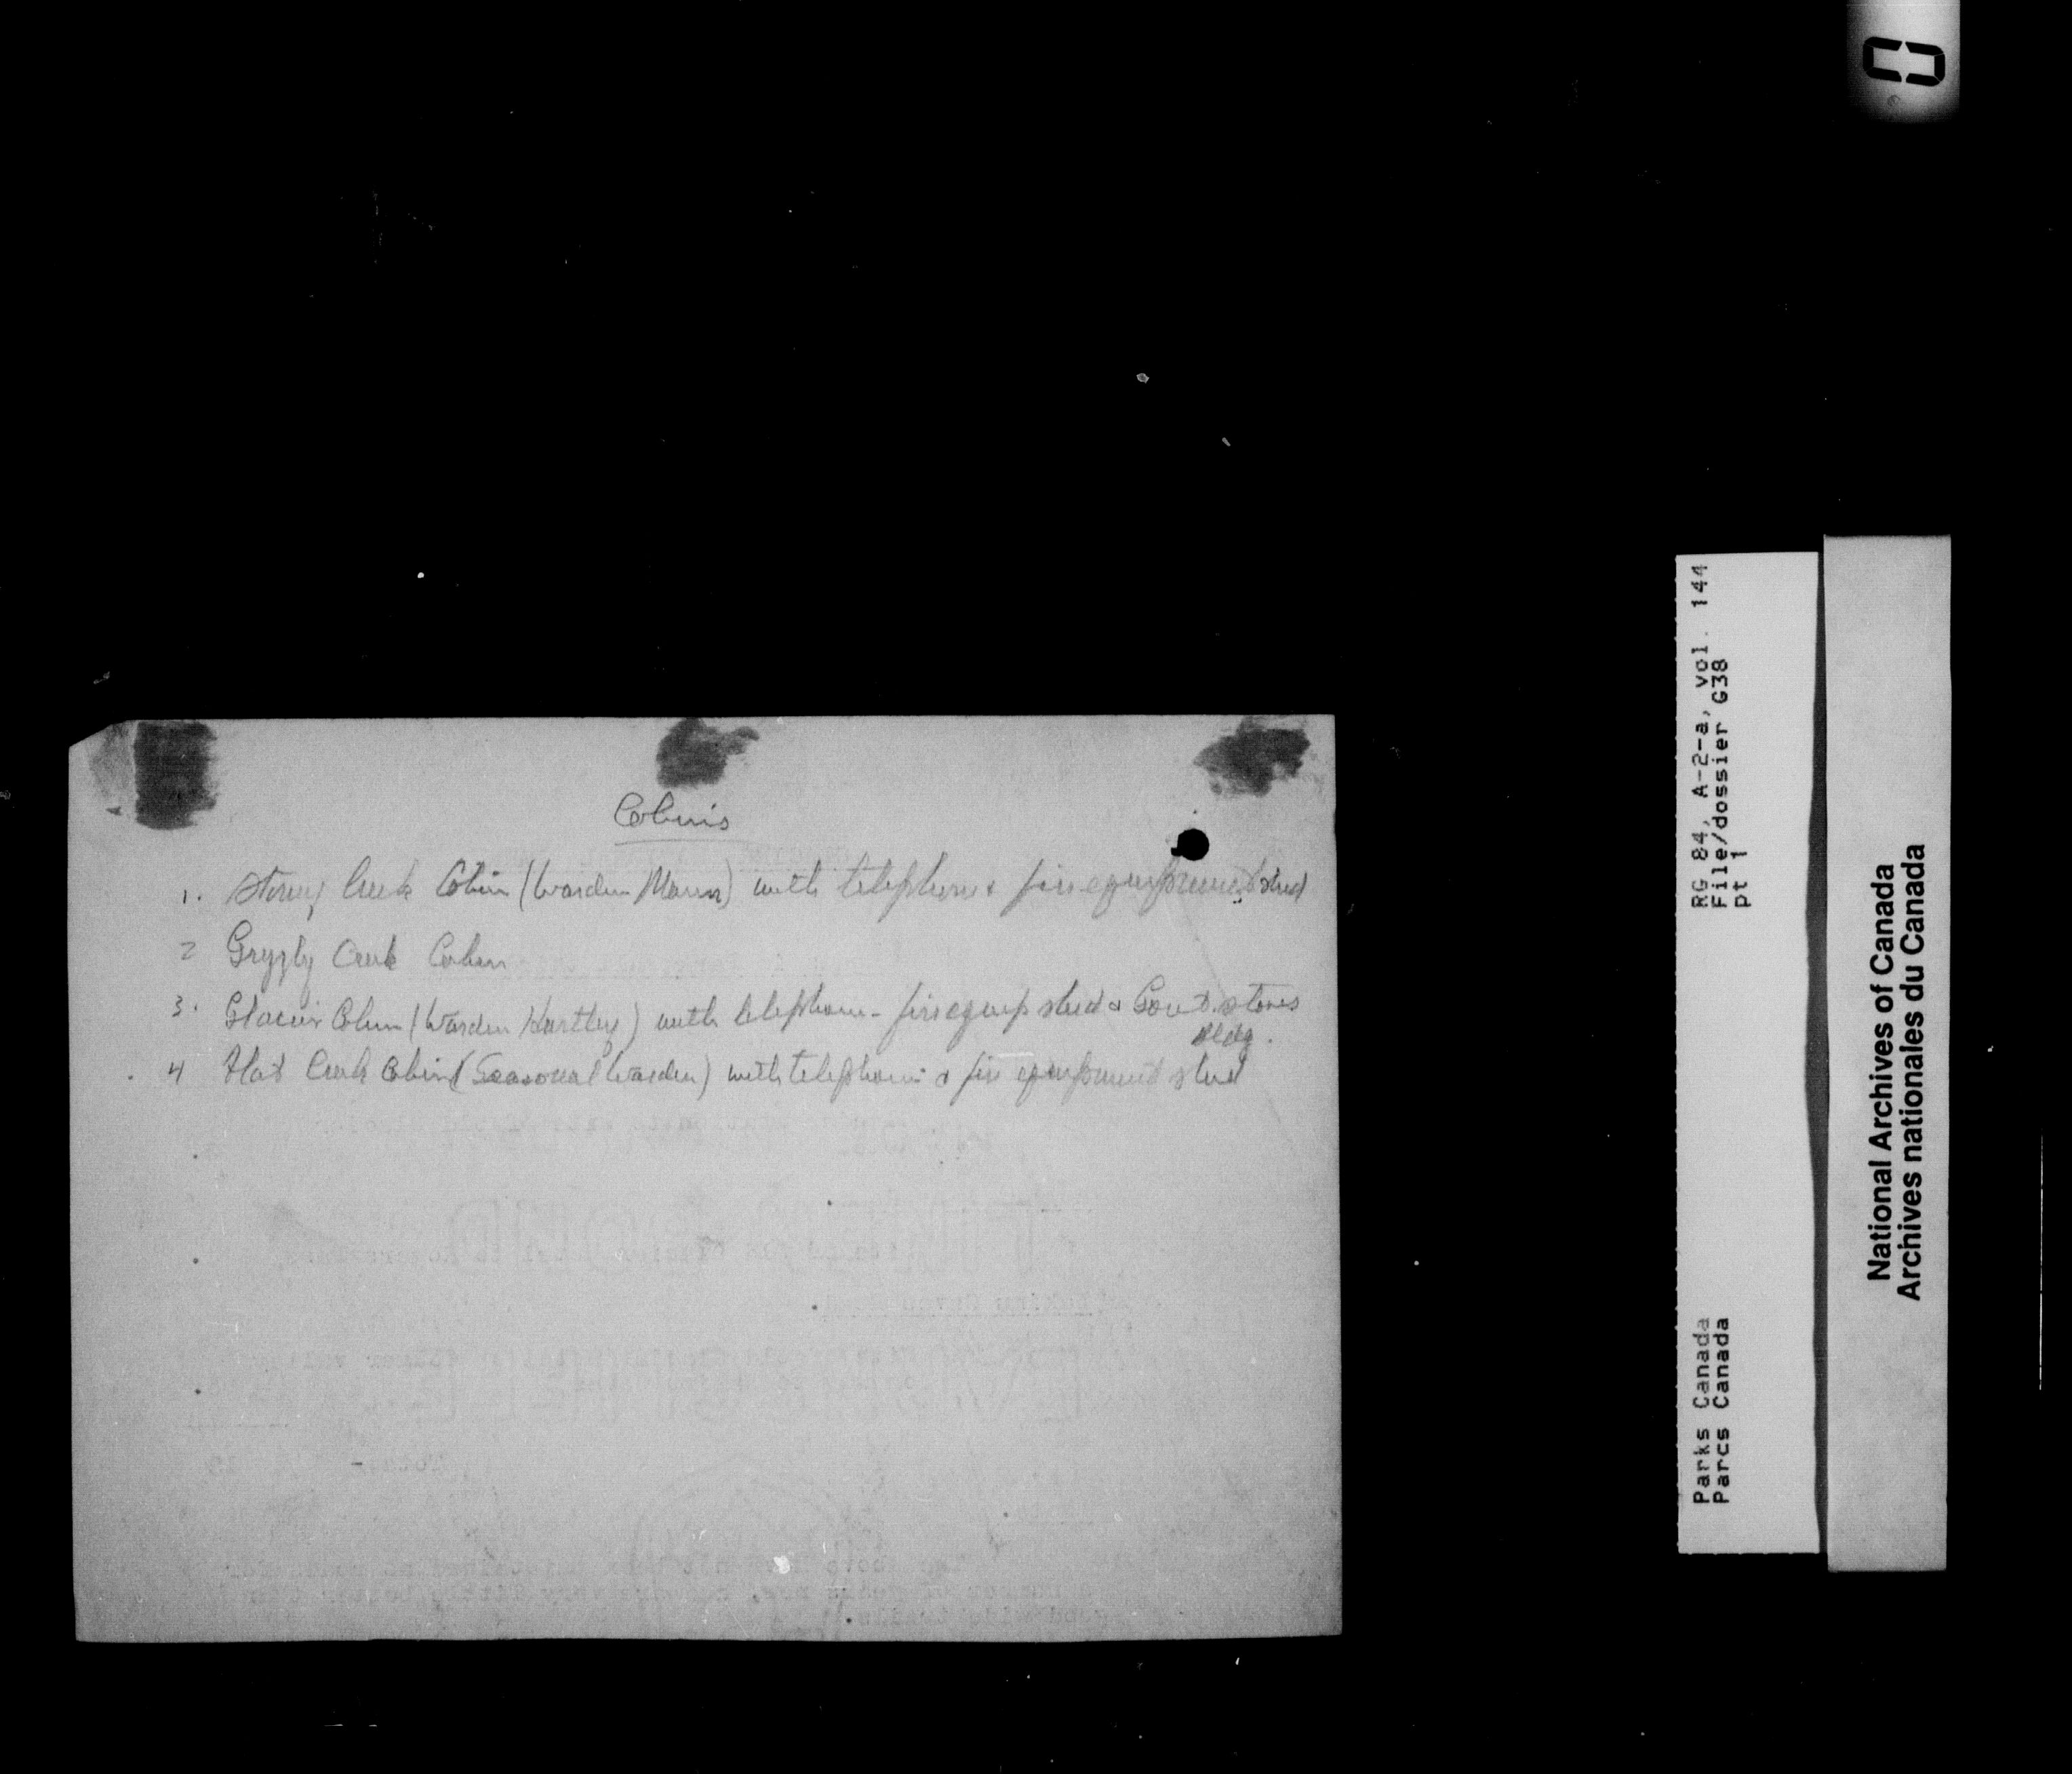 Cabins
1. Stoney Creek Cabin (Warden Mann) with telephone & fire equipment shed
2 Gryzly Creek Cabin
3. Glacier Cabin (Warden Hartley) with telephone - fire equip shed & Govt. stores
Bldg.
4 Flat Creek Cabin (Seasonal Warden) with telephone & fire equipment shed
RG 84, A-2-a, vol. 144
File/dossier G38
pt 1
Parks Canada
Parcs Canada
National Archives of Canada
Archives nationales du Canada